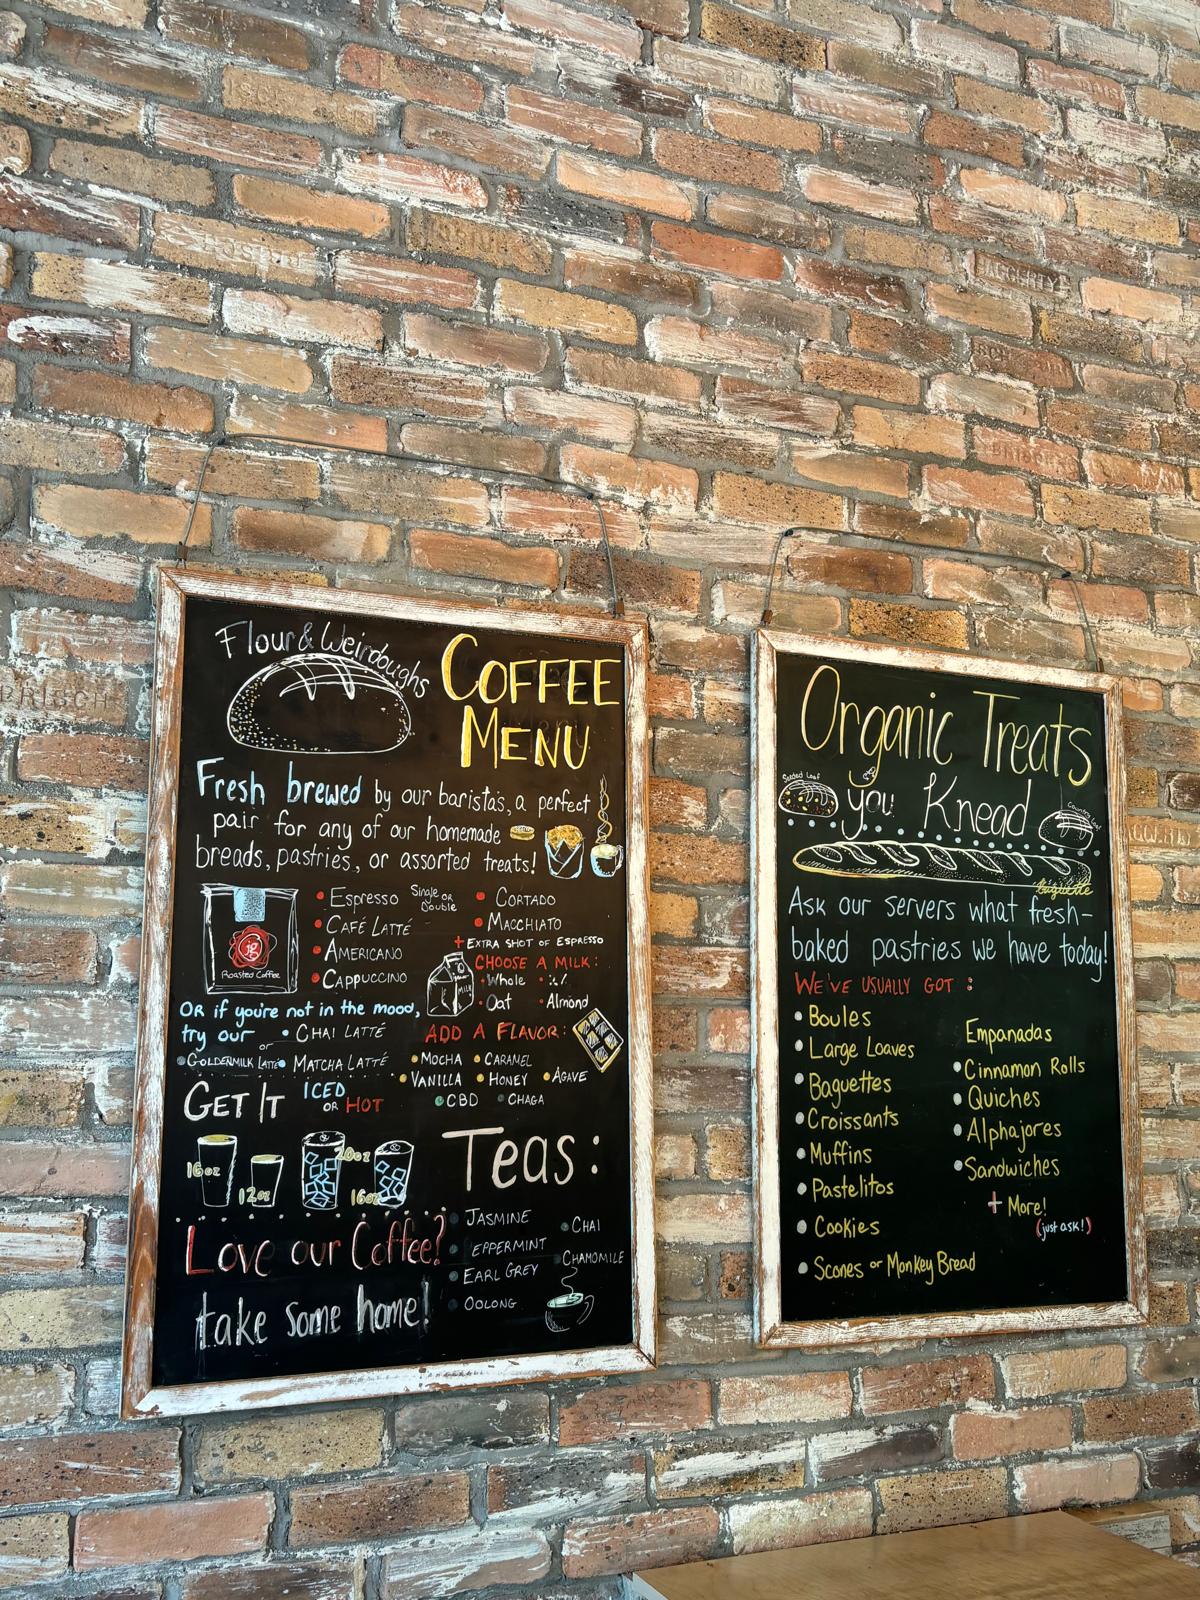 Flour & Weirdoughs
COFFEE
MENU
Fresh brewed by our barista's, a perfect
pair for any of our homemade
breads, pastries, or assorted treats!
Espresso Single or Double
CAFÉ LATTÉ
AMERICANO
CAPPUCCINO
CORTADO
MACCHIATO
+ EXTRA SHOT OF ESPRESSO
jg
Roasted Coffee
MILK
CHOOSE A MILK:
Whole
2%
Oat
Almond
OR if you're not in the mood,
try our
CHAI LATTÉ
or
GOLDENMILK LATTÉ
MATCHA LATTÉ
ADD A FLAVOR:
MOCHA
CARAMEL
VANILLA
HONEY
AGAVE
CBD
CHAGA
GET IT ICED
OR HOT
16oz
12oz
20oz
16oz
Teas:
JASMINE
EPPERMINT
EARL GREY
OOLONG
CHAI
CHAMOMILE
Love our Coffee?
take some home!
Organic Treats
you Knead
Seeded Loaf
Country Loaf
baguette
Ask our servers what fresh-
baked pastries we have today!
WE'VE USUALLY GOT :
Boules
Large Loaves
Baguettes
Croissants
Muffins
Pastelitos
Cookies
Scones or Monkey Bread
Empanadas
Cinnamon Rolls
Quiches
Alphajores
Sandwiches
+ More!
(just ask!)
BRISCH
HAGGERTY